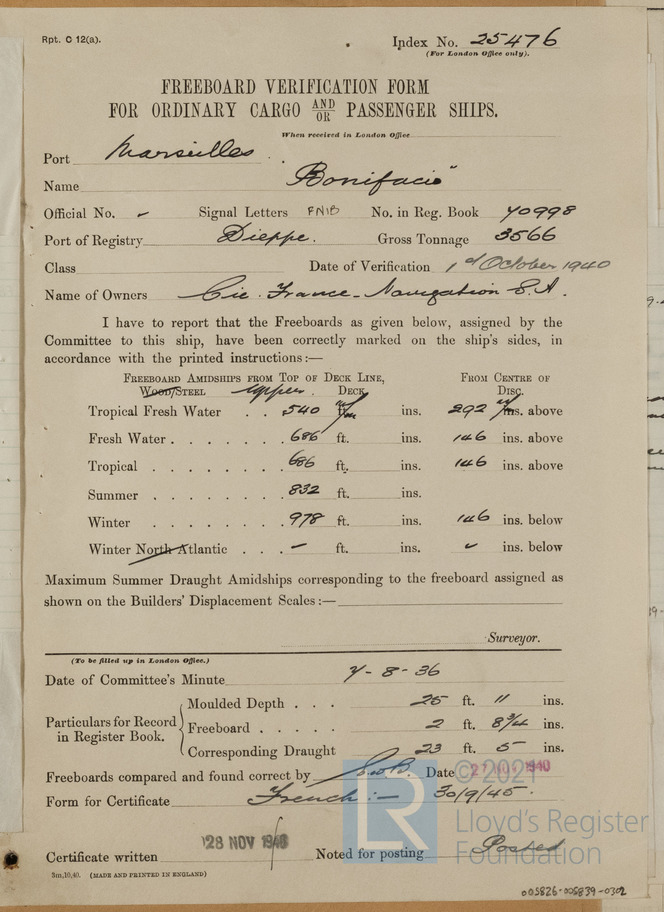 Rpt. C 12(a).
Index No. 25476
(For London Office only).
FREEBOARD VERIFICATION FORM
FOR ORDINARY CARGO AND/OR PASSENGER SHIPS.
When received in London Office
Port Marseilles
Name Bonifacio"
Official No. - Signal Letters FNIB No. in Reg. Book 40998
Port of Registry Dieppe. Gross Tonnage 3566
Class Date of Verification 1st October 1940
Name of Owners Cie. France-Navigation S.A.
I have to report that the Freeboards as given below, assigned by the
Committee to this ship, have been correctly marked on the ship's sides, in
accordance with the printed instructions:—
Freeboard Amidships from Top of Deck Line, From Centre of
Wood/Steel upper. Deck Disc.
Tropical Fresh Water . . 540 m/m ins. 292 m/m ins. above
Fresh Water . . . . . . 686 ft. ins. 146 ins. above
Tropical . . . . . . . 686 ft. ins. 146 ins. above
Summer . . . . . . . 832 ft. ins.
Winter . . . . . . . 978 ft. ins. 146 ins. below
Winter North Atlantic . . . - ft. ins. - ins. below
Maximum Summer Draught Amidships corresponding to the freeboard assigned as
shown on the Builders' Displacement Scales:—
Surveyor.
(To be filled up in London Office.)
Date of Committee's Minute 4-8-36
Particulars for Record in Register Book.
Moulded Depth . . . 25 ft. 11 ins.
Freeboard . . . . . 2 ft. 8 3/4 ins.
Corresponding Draught 23 ft. 5 ins.
Freeboards compared and found correct by Date 27 NOV 1940
Form for Certificate French:- 30/9/45.
Certificate written 28 NOV 1940 Noted for posting Posted
3m,10,40. (MADE AND PRINTED IN ENGLAND)
© 2021
LR
Lloyd's Register
Foundation
005826-005839-0302